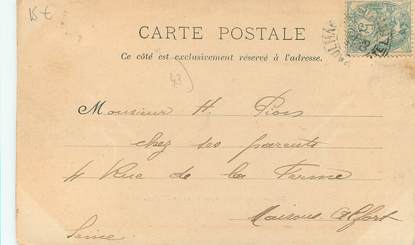 15 €
CARTE POSTALE
Ce côté est exclusivement réservé à l'adresse.
43
Monsieur H. Pion
chez ses parents
4 Rue de la Ferme
Maisons Alfort
Seine